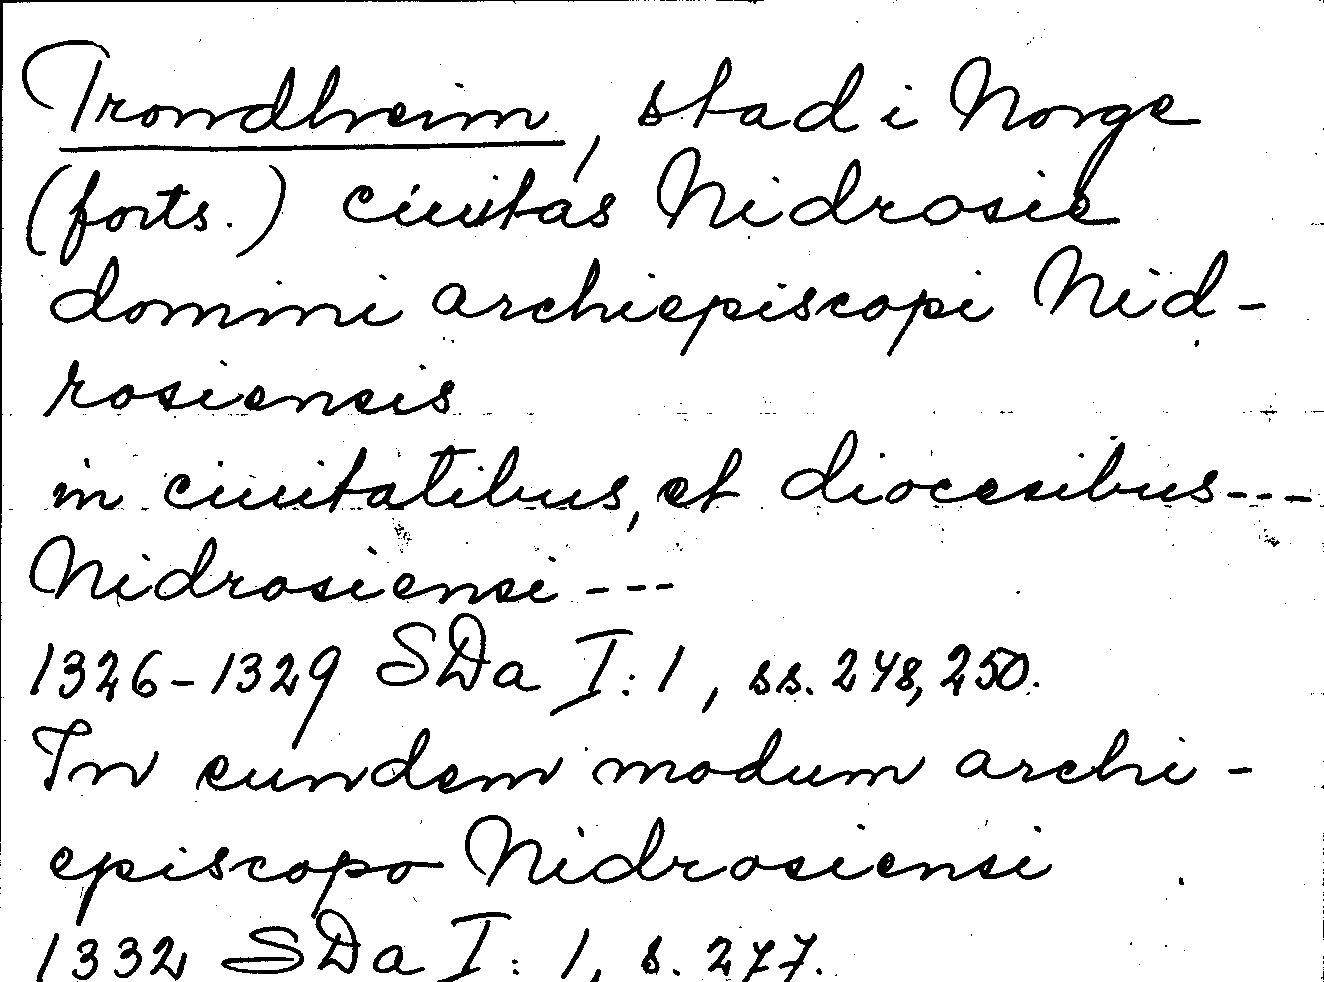 Trondheim, stad i Norge
(forts.) ciuitas Nidrosie
domini archiepiscopi Nid-
rosiensis
in ciuitatibus, et diocesibus---
Nidrosiensi---
1326-1329 SDa I:1, ss. 248, 250.
In eundem modum archi-
episcopo Nidrosiensi
1332 SDa I:1, s. 277.